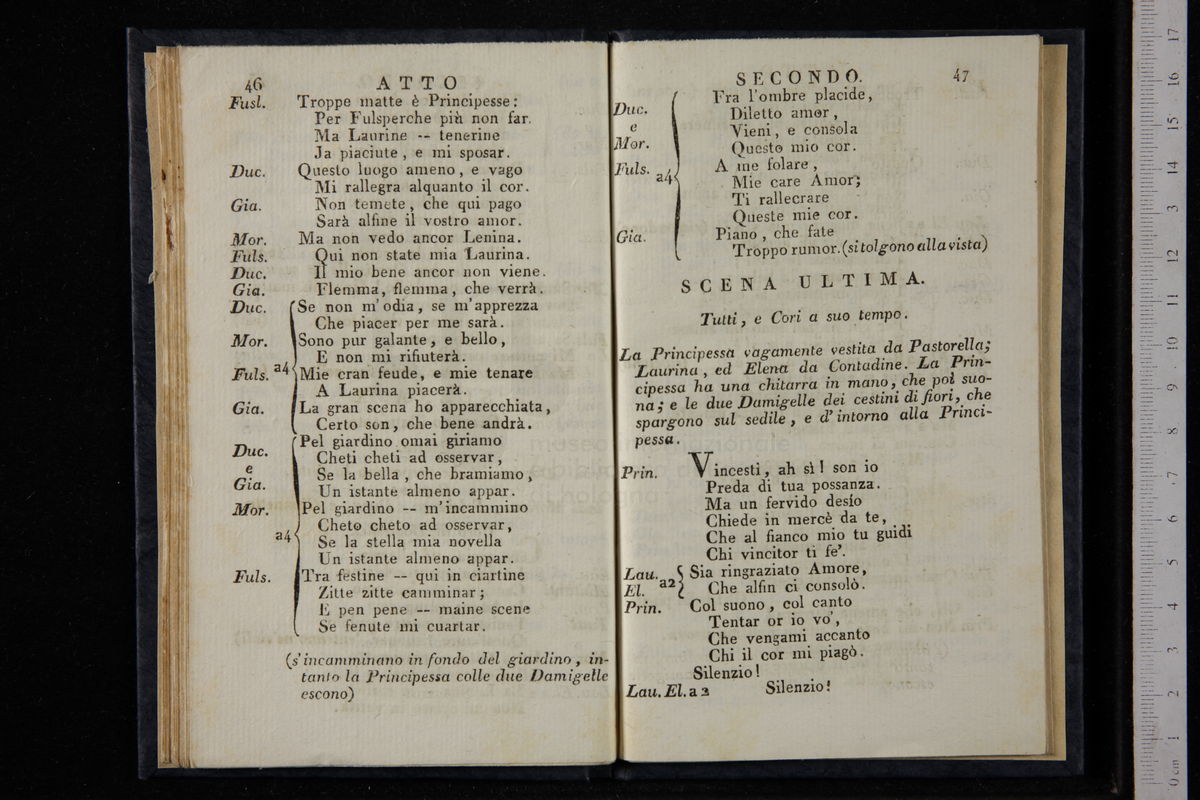 46 ATTO
Fusl. Troppe matte è Principesse:
Per Fulsperche più non far.
Ma Laurine -- tenerine
Ja piaciute, e mi sposar.
Duc. Questo luogo ameno, e vago
Mi rallegra alquanto il cor.
Gia. Non temete, che qui pago
Sarà alfine il vostro amor.
Mor. Ma non vedo ancor Lenina.
Fuls. Qui non state mia Laurina.
Duc. Il mio bene ancor non viene.
Gia. Flemma, flemma, che verrà.
Duc. Se non m'odia, se m'apprezza
Che piacer per me sarà.
Mor. Sono pur galante, e bello,
E non mi rifiuterà.
Fuls. a4 Mie cran feude, e mie tenare
A Laurina piacerà.
Gia. La gran scena ho apparecchiata,
Certo son, che bene andrà.
Duc. e Gia. Pel giardino omai giriamo
Cheti cheti ad osservar,
Se la bella, che bramiamo,
Un istante almeno appar.
Mor. Pel giardino -- m'incammino
Cheto cheto ad osservar,
a4 Se la stella mia novella
Un istante almeno appar.
Fuls. Tra festine -- qui in ciartine
Zitte zitte camminar;
E pen pene -- maine scene
Se fenute mi cuartar.
(s'incamminano in fondo del giardino, in-
tanto la Principessa colle due Damigelle
escono)
SECONDO. 47
Duc. e Mor. Fra l'ombre placide,
Diletto amor,
Vieni, e consola
Questo mio cor.
Fuls. a4 A me folare,
Mie care Amor;
Ti rallecrare
Queste mie cor.
Gia. Piano, che fate
Troppo rumor. (si tolgono alla vista)
SCENA ULTIMA.
Tutti, e Cori a suo tempo.
La Principessa vagamente vestita da Pastorella;
Laurina, ed Elena da Contadine. La Prin-
cipessa ha una chitarra in mano, che poi suo-
na; e le due Damigelle dei cestini di fiori, che
spargono sul sedile, e d'intorno alla Princi-
pessa.
Prin. Vincesti, ah sì! son io
Preda di tua possanza.
Ma un fervido desìo
Chiede in mercè da te,
Che al fianco mio tu guidi
Chi vincitor ti fe'.
Lau. El. a2 Sia ringraziato Amore,
Che alfin ci consolò.
Prin. Col suono, col canto
Tentar or io vo',
Che vengami accanto
Chi il cor mi piagò.
Silenzio!
Lau. El. a 2 Silenzio!
0 cm 1 2 3 4 5 6 7 8 9 10 11 12 13 14 15 16 17